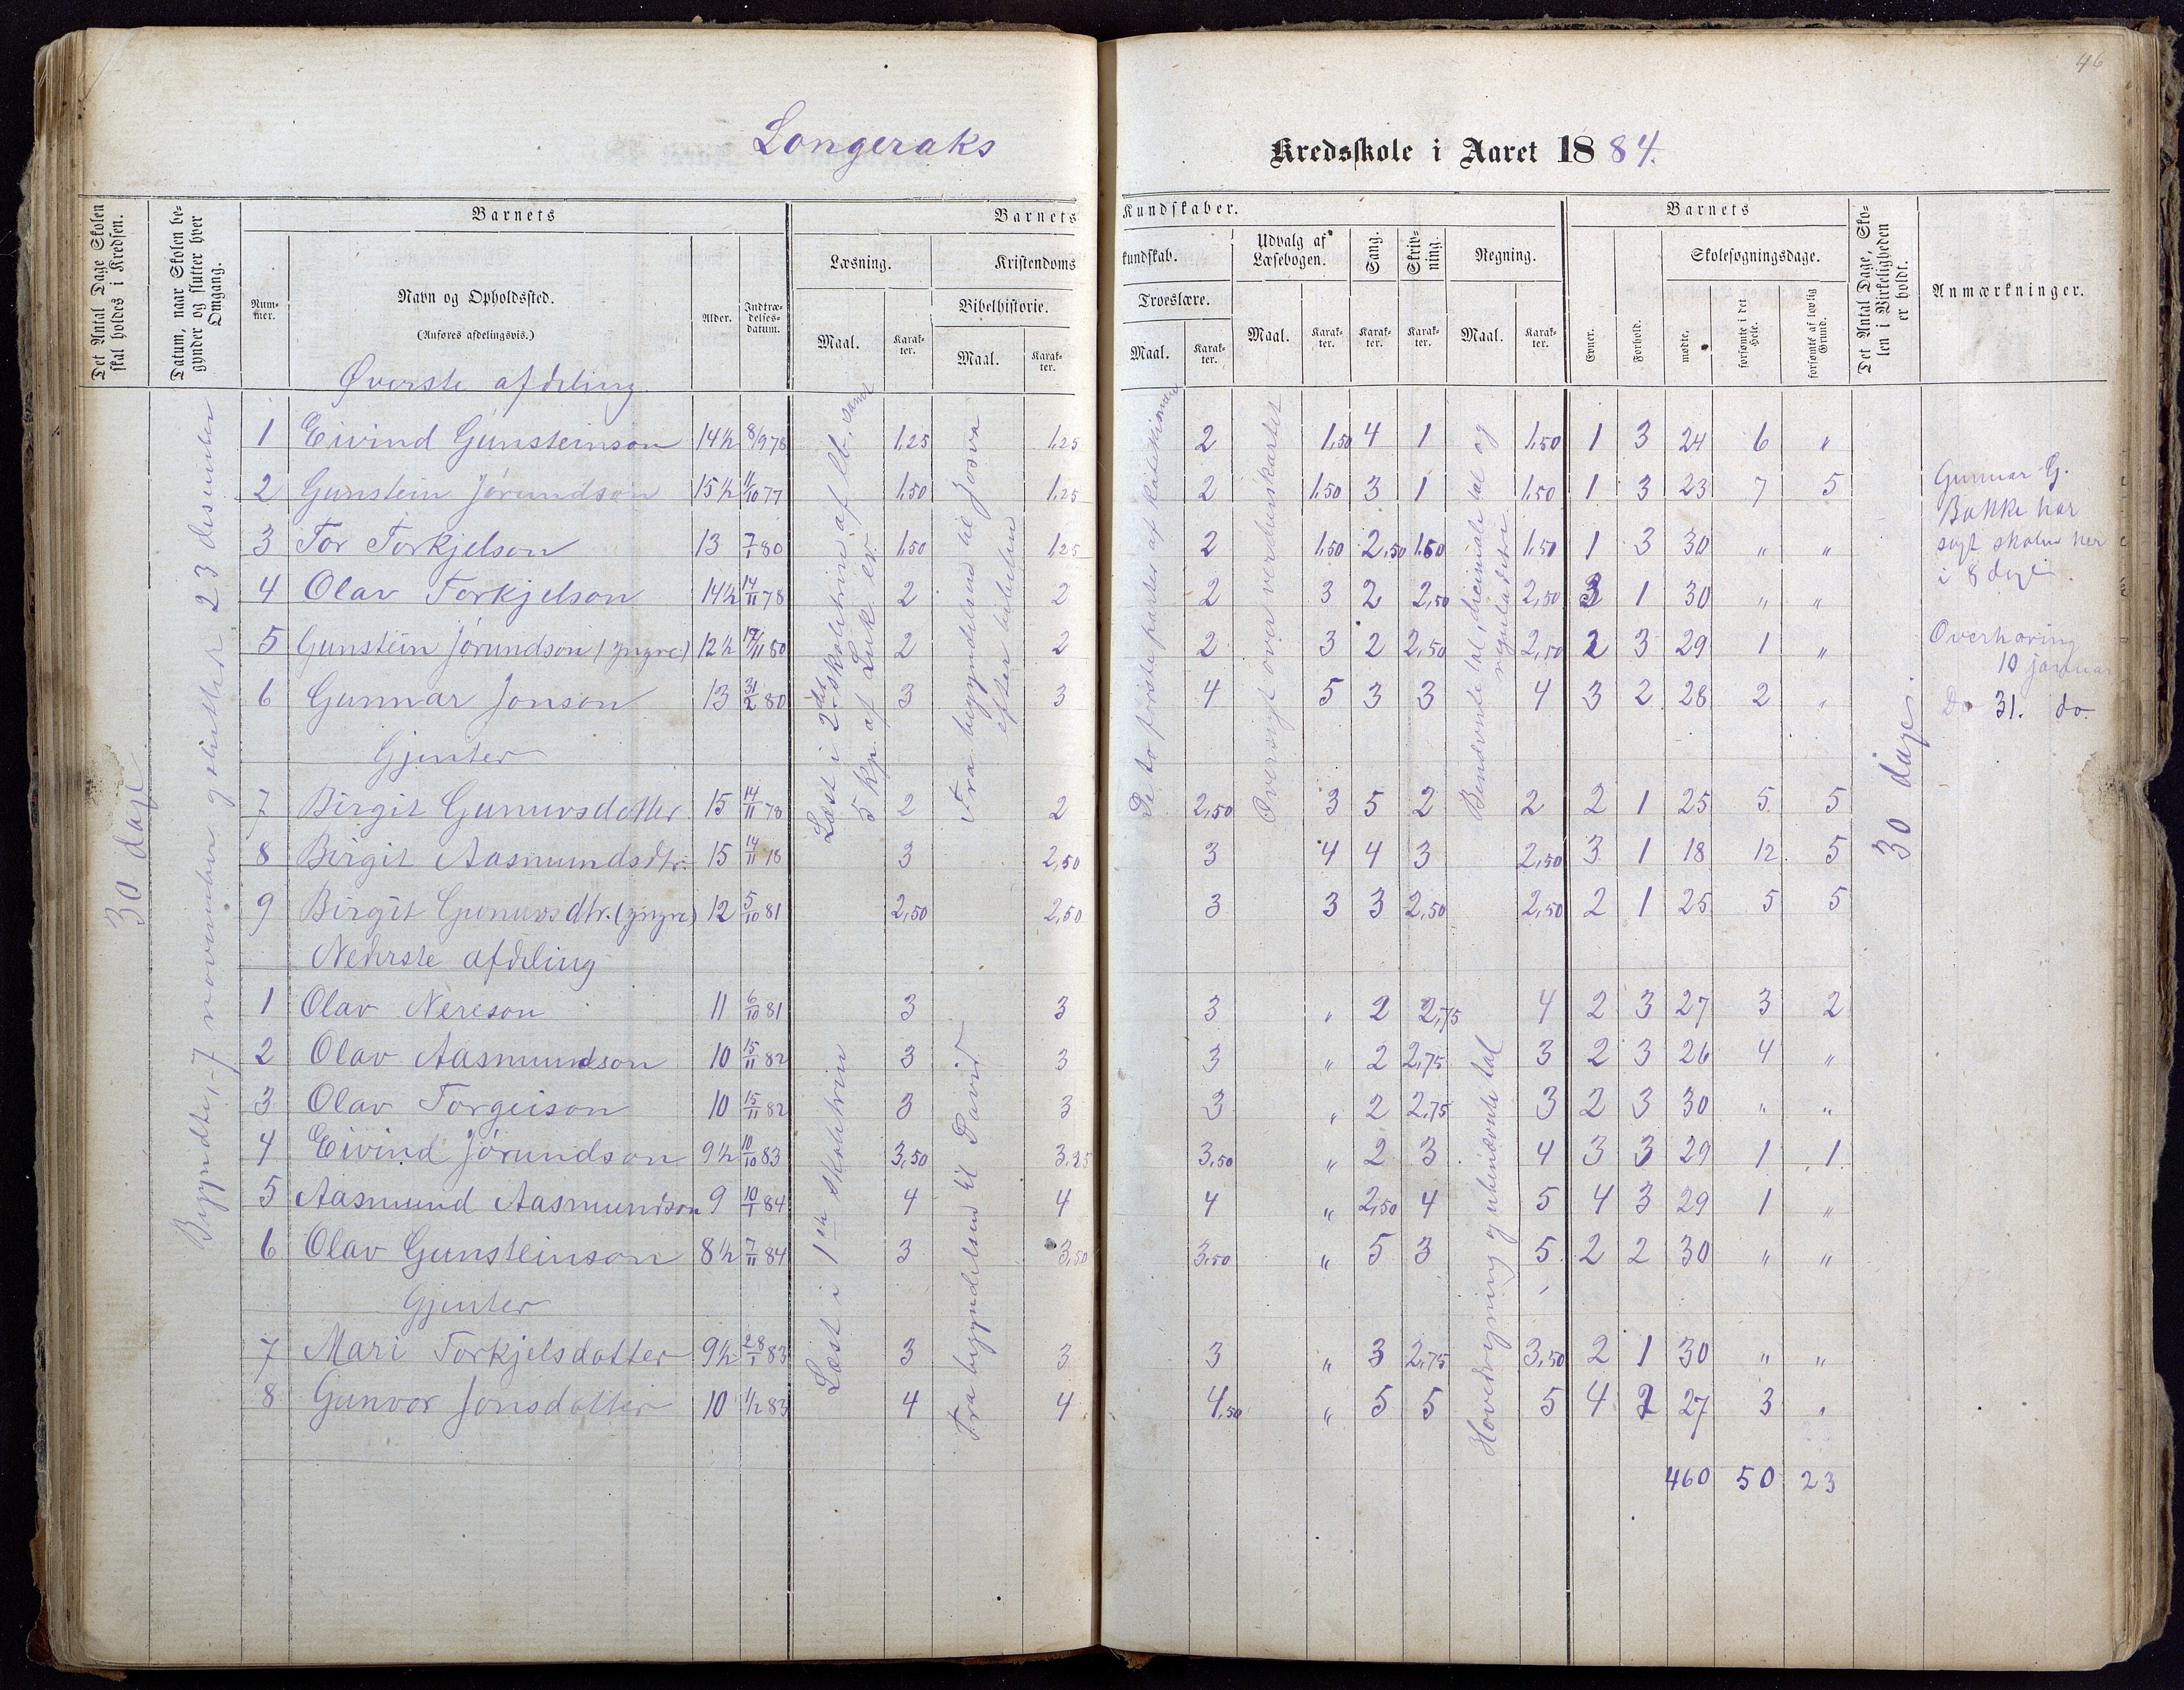 46
Longeraks Kredsskole i Aaret 1884.
Det Antal Dage Skolen skal holdes i Kredsen.
Datum, naar Skolen begynder og slutter hver Omgang.
Barnets
Nummer.
Navn og Opholdssted.
(Anføres afdelingsvis.)
Alder.
Indtrædelsesdatum.
Barnets Kundskaber.
Læsning.
Maal.
Karakter.
Kristendomskundskab.
Bibelhistorie.
Maal.
Karakter.
Troeslære.
Maal.
Karakter.
Udvalg af Læsebogen.
Maal.
Karakter.
Sang.
Karakter.
Skrivning.
Karakter.
Regning.
Maal.
Karakter.
Barnets
Evner.
Forhold.
Skolesøgningsdage.
mødte.
forsømte i det Hele.
forsømte af lovlig Grund.
Det Antal Dage, Skolen i Virkeligheden er holdt.
Anmærkninger.
30 dage
Begyndte 7 november og sluttet 23 desember
Øverste afdeling
1 Eivind Gunsteinson 14½ 8/9 78 1,25 1,25 2 1,50 4 1 1,50 1 3 24 6 "
2 Gunstein Jørundson 15½ 11/10 77 1,50 1,25 2 1,50 3 1 1,50 1 3 23 7 5
3 Tor Torkjelson 13 7/1 80 1,50 1,25 2 1,50 2,50 1,50 1,50 1 3 30 " "
4 Olav Torkjelson 14½ 14/11 78 2 2 2 3 2 2,50 2,50 3 1 30 " "
5 Gunstein Jørundson (yngre) 12½ 17/11 80 2 2 2 3 2 2,50 2,50 2 3 29 1 "
6 Gunnar Jonson 13 31/2 80 3 3 4 5 3 3 4 3 2 28 2 "
Gjenter
7 Birgit Gunuvsdotter 15 14/11 78 2 2 2,50 3 5 2 2 2 1 25 5 5
8 Birgit Aasmundsdtr. 15 14/11 78 3 2,50 3 4 4 3 2,50 3 1 18 12 5
9 Birgit Gunuvsdtr. (yngre) 12 5/10 81 2,50 2,50 3 3 3 2,50 2,50 2 1 25 5 5
Nederste afdeling
1 Olav Nereson 11 6/10 81 3 3 3 " 2 2,75 4 2 3 27 3 2
2 Olav Aasmundson 10 15/11 82 3 3 3 " 2 2,75 3 2 3 26 4 "
3 Olav Torgeison 10 15/11 82 3 3 3 " 2 2,75 3 2 3 30 " "
4 Eivind Jørundson 9½ 10/10 83 3,50 3,25 3,50 " 2 3 4 3 3 29 1 1
5 Aasmund Aasmundson 9 10/1 84 4 4 4 " 2,50 4 5 4 3 29 1 "
6 Olav Gunsteinson 8½ 7/11 84 3 3,50 3,50 " 5 3 5 2 2 30 " "
Gjenter
7 Mari Torkjelsdotter 9½ 28/1 83 3 3 3 " 3 2,75 3,50 2 1 30 " "
8 Gunvor Jonsdotter 10 1/12 83 4 4 4,50 " 5 5 5 4 2 27 3 "
460 50 23
Læst i 2det skoletrin af lb. samt
5 kp. af Luk. ev.
Fra begyndelsen til Josva
efter bibelen
De to første parter af katekismen
Oversigt over verdenskartet
Benævnte tal, desimale tal og
reguladetri
Læst i 1ste skoletrin
Fra begyndelsen til David
Hovedregning og ubenævnte tal
30 dage.
Gunnar G.
Bakke har
søgt skolen her
i 8 dage.
Overhøring
10 januar
Do 31. do.